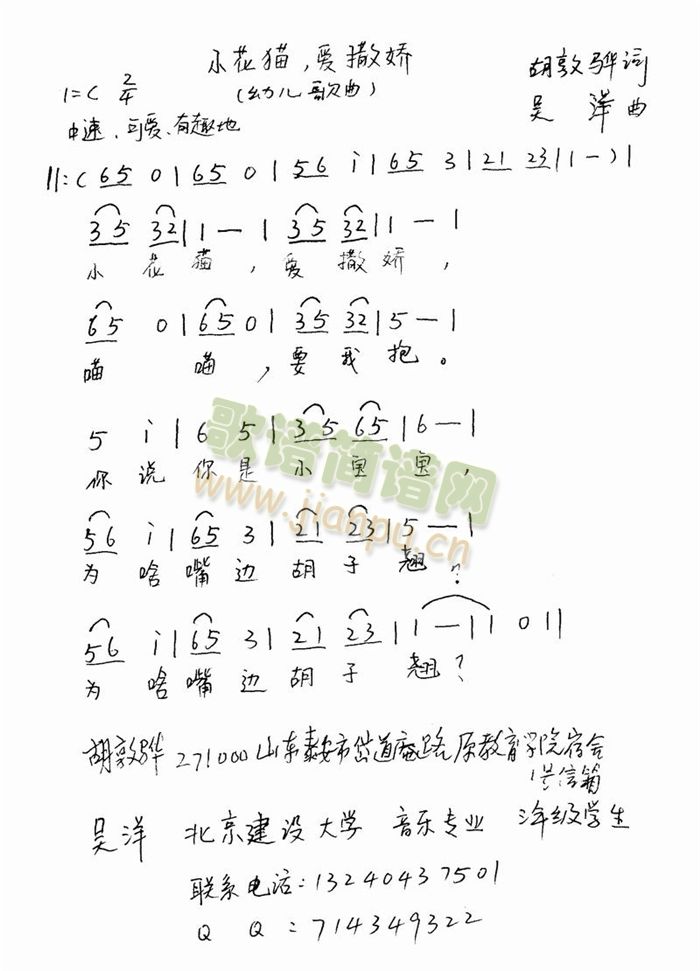 小花猫,爱撒娇
1=C 2/4
(幼儿歌曲)
胡敦骅词
吴 洋 曲
中速、可爱、有趣地
||:( 65 0 | 65 0 | 56 i | 65 3 | 21 23 | 1 - ) |
35 32 | 1 - | 35 32 | 1 - |
小花猫,爱撒娇,
65 0 | 65 0 | 35 32 | 5 - |
喵 喵,要我抱。
5 i | 6 5 | 35 65 | 6 - |
你说你是小宝宝,
56 i | 65 3 | 21 23 | 5 - |
为啥嘴边胡子翘?
56 i | 65 3 | 21 23 | 1 - | 1 0 ||
为啥嘴边胡子翘?
歌谱简谱网
www.jianpu.cn
胡敦骅 271000山东泰安市岱道庵路原教育学院宿舍
信箱
吴洋 北京建设大学 音乐专业 年级学生
联系电话:13240437501
Q Q :714349322